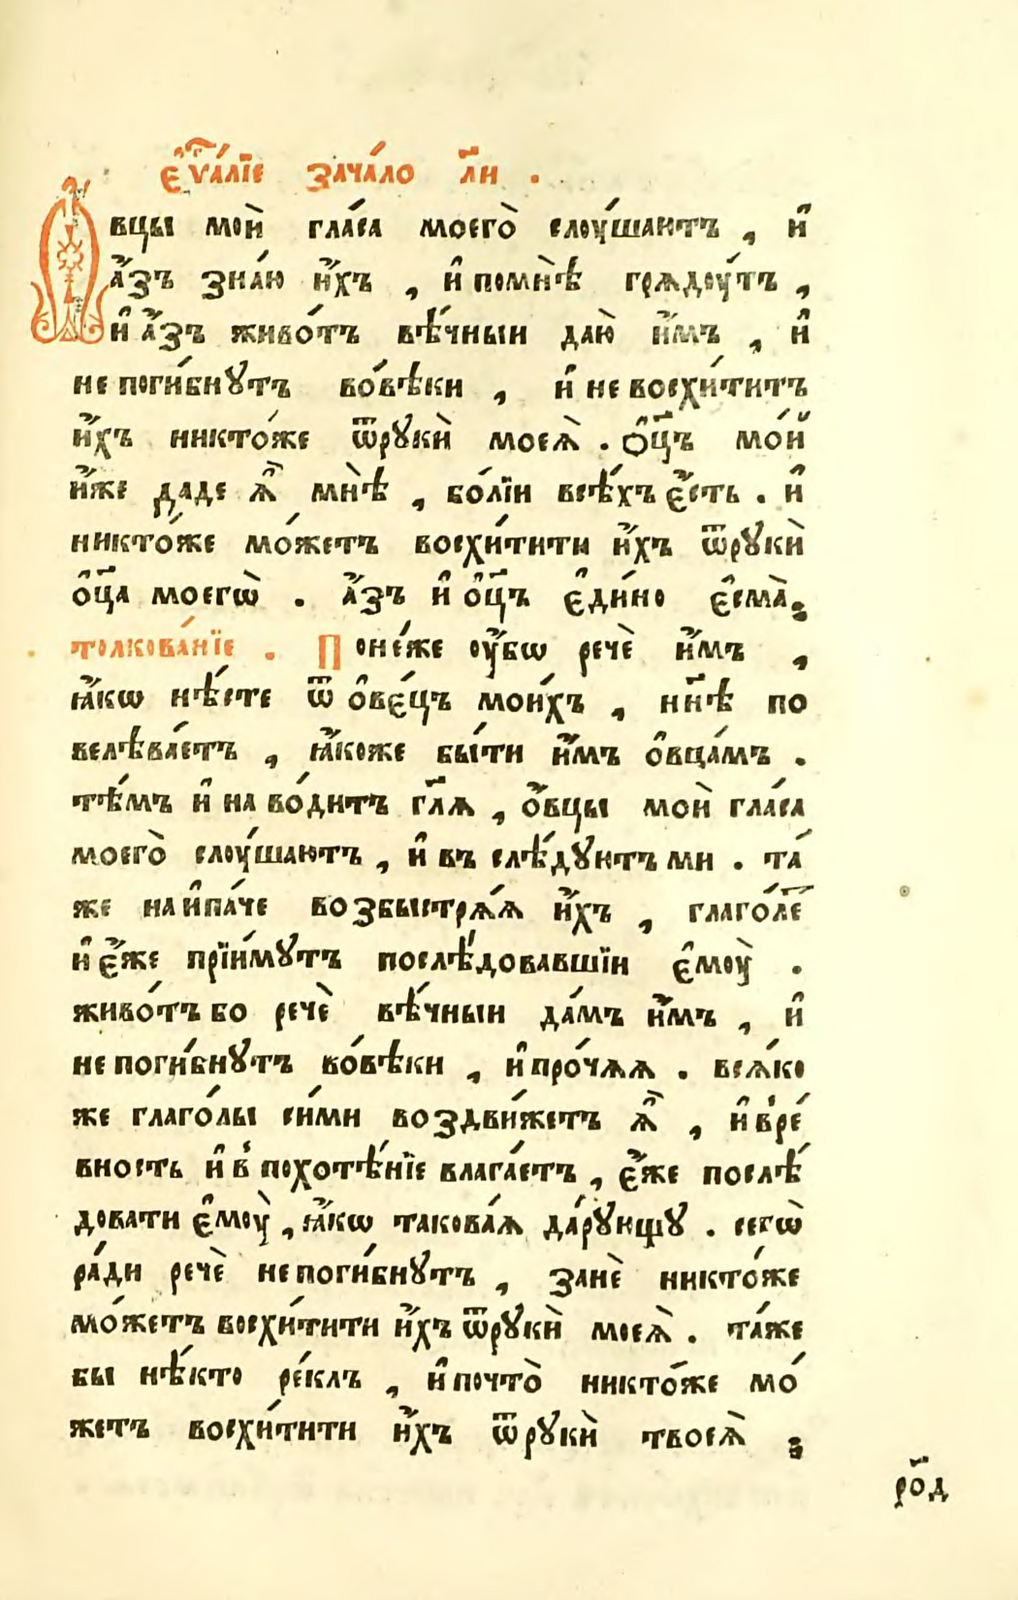 є҆ѵⷢ҇а́лїе зача́ло л҃и .
Овцы моѝ гла́са моего̀ слоу́шаютъ , и҆
а҆́зъ зна́ю и҆́хъ , и҆ помнѣ̀ грѧдоу́тъ ,
и҆ а҆́зъ живо́тъ вѣ́чныи даю̀ и҆́мъ , и҆
не поги́бнꙋтъ во́вѣки , и҆ не восхи́титъ
и҆́хъ никто́же ѿрꙋкѝ моеѧ̀ . ѻ҆ц҃ъ мо́й
и҆́же даде ѧ҆̀ мнѣ̀ , бо́лїи всѣ́хъ є҆́сть . и҆
никто́же мо́жетъ восхи́тити и҆́хъ ѿрꙋкѝ
о҆ц҃а моегѡ̀ . а҆́зъ и҆ о҆ц҃ъ є҆ди́но є҆сма̀ ;
толкова́нїе . Поне́же оу҆́бѡ речѐ и҆́мъ ,
ꙗ҆́кѡ нѣ́сте ѿ о҆ве́цъ мои́хъ , нн҃ѣ по
велѣва́етъ , ꙗ҆́коже бы́ти и҆́мъ о҆вца́мъ .
тѣ́мъ и҆ на во́дитъ гл҃ѧ , о҆́вцы моѝ гла́са
моего̀ слоу́шаютъ , и҆ въ слѣ́дꙋютъ ми . та́
же на и҆па́че возбыстрѧ́ѧ и҆́хъ , глаго́леⷮ
и҆ є҆́же прїи́мꙋтъ послѣ́довавшїи є҆моу̀ .
живо́тъ бо речѐ вѣ́чныи да́мъ и҆́мъ , и҆
не поги́бнꙋтъ во́вѣки , и҆ про́чѧѧ . всѧ́ко
же глаго́лы си́ми воздви́жетъ ѧ҆̀ , и҆ в̾ре́
вность и҆ в̾ похотѣ́нїе влага́етъ , є҆́же послѣ́
довати є҆моу̀ , ꙗ҆́кѡ такова́ѧ да́рꙋющꙋ . сегѡ̀
ра́ди речѐ не поги́бнꙋтъ , занѐ никто́же
мо́жетъ восхи́тити и҆́хъ ѿрꙋкѝ моеѧ̀ . та́же
бы нѣ́кто ре́клъ , и҆ почто̀ никто́же мо́
жетъ восхи́тити и҆́хъ ѿ рꙋкѝ твоеѧ̀ ;
ро҃д